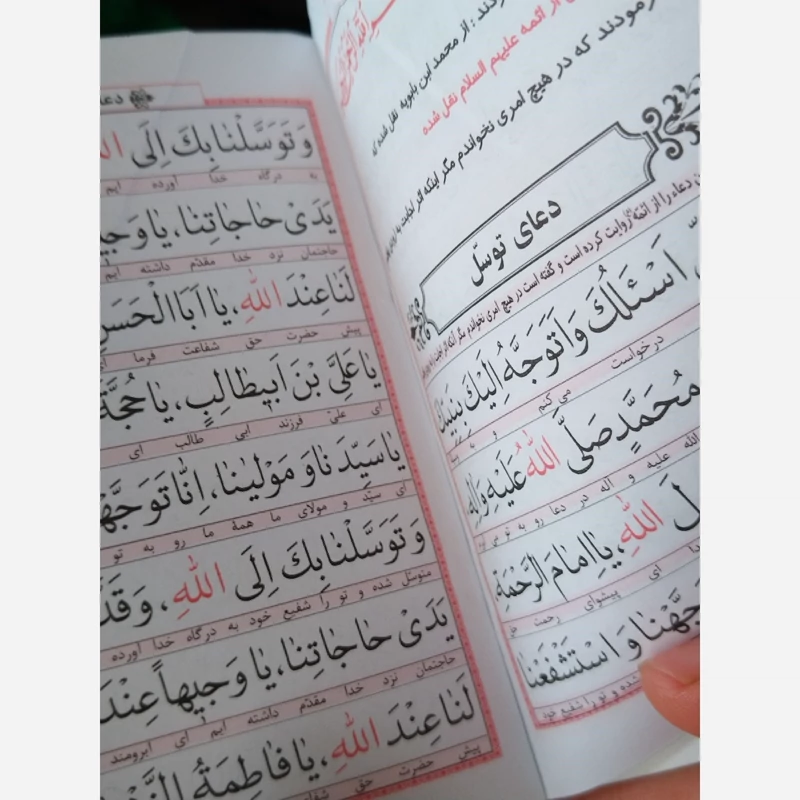 دند : از محمد ابن بابویه نقل شده که
از ائمه علیهم السلام نقل شده
مودند که در هیچ امری نخواندم مگر اینکه اثر اجابت
دعای توسّل
دعاء را از ائمّه روایت کرده است و گفته است در هیچ امری نخواندم مگر آنکه اثر اجابت
اَسْئَلُكَ وَ اَتَوَجَّهُ اِلَيْكَ بِنَبِيِّكَ
درخواست می کنم و به
مُحَمَّدٍ صَلَّى اللهُ عَلَيْهِ وَ اٰلِهِ
الله علیه و اله در دعا رو به تو
اللهِ، يا اِمامَ الرَّحْمَةِ،
ای پیشوای رحمت
وَ اسْتَشْفَعْنا
شده و تو را شفیع خود
دعا
وَ تَوَسَّلْنا بِكَ اِلَى
به درگاه خدا آورده ایم
يَدَىْ حاجاتِنا، يا وَجيـ
حاجتمان نزد خدا مقدّم داشته ایم
لَنا عِنْدَ اللهِ، يا اَبَا الْحَسَنِ
پیش حضرت حق شفاعت فرما
يا عَلِىَّ بْنَ اَبيطالِبٍ، يا حُجَّةَ
ای علیّ فرزند ابی طالب ای
يا سَيِّدَنا وَ مَوْلينا، اِنّا تَوَجَّهْـ
ای سیّد و مولای ما همهٔ ما رو به تو
وَ تَوَسَّلْنا بِكَ اِلَى اللهِ، وَ قَدَّ
متوسّل شده و تو را شفیع خود به درگاه خدا آورده
يَدَىْ حاجاتِنا، يا وَجيهاً عِنْدَ
حاجتمان نزد خدا مقدّم داشته ایم ای آبرومند
لَنا عِنْدَ اللهِ، يا فاطِمَةُ
پیش حضرت حق